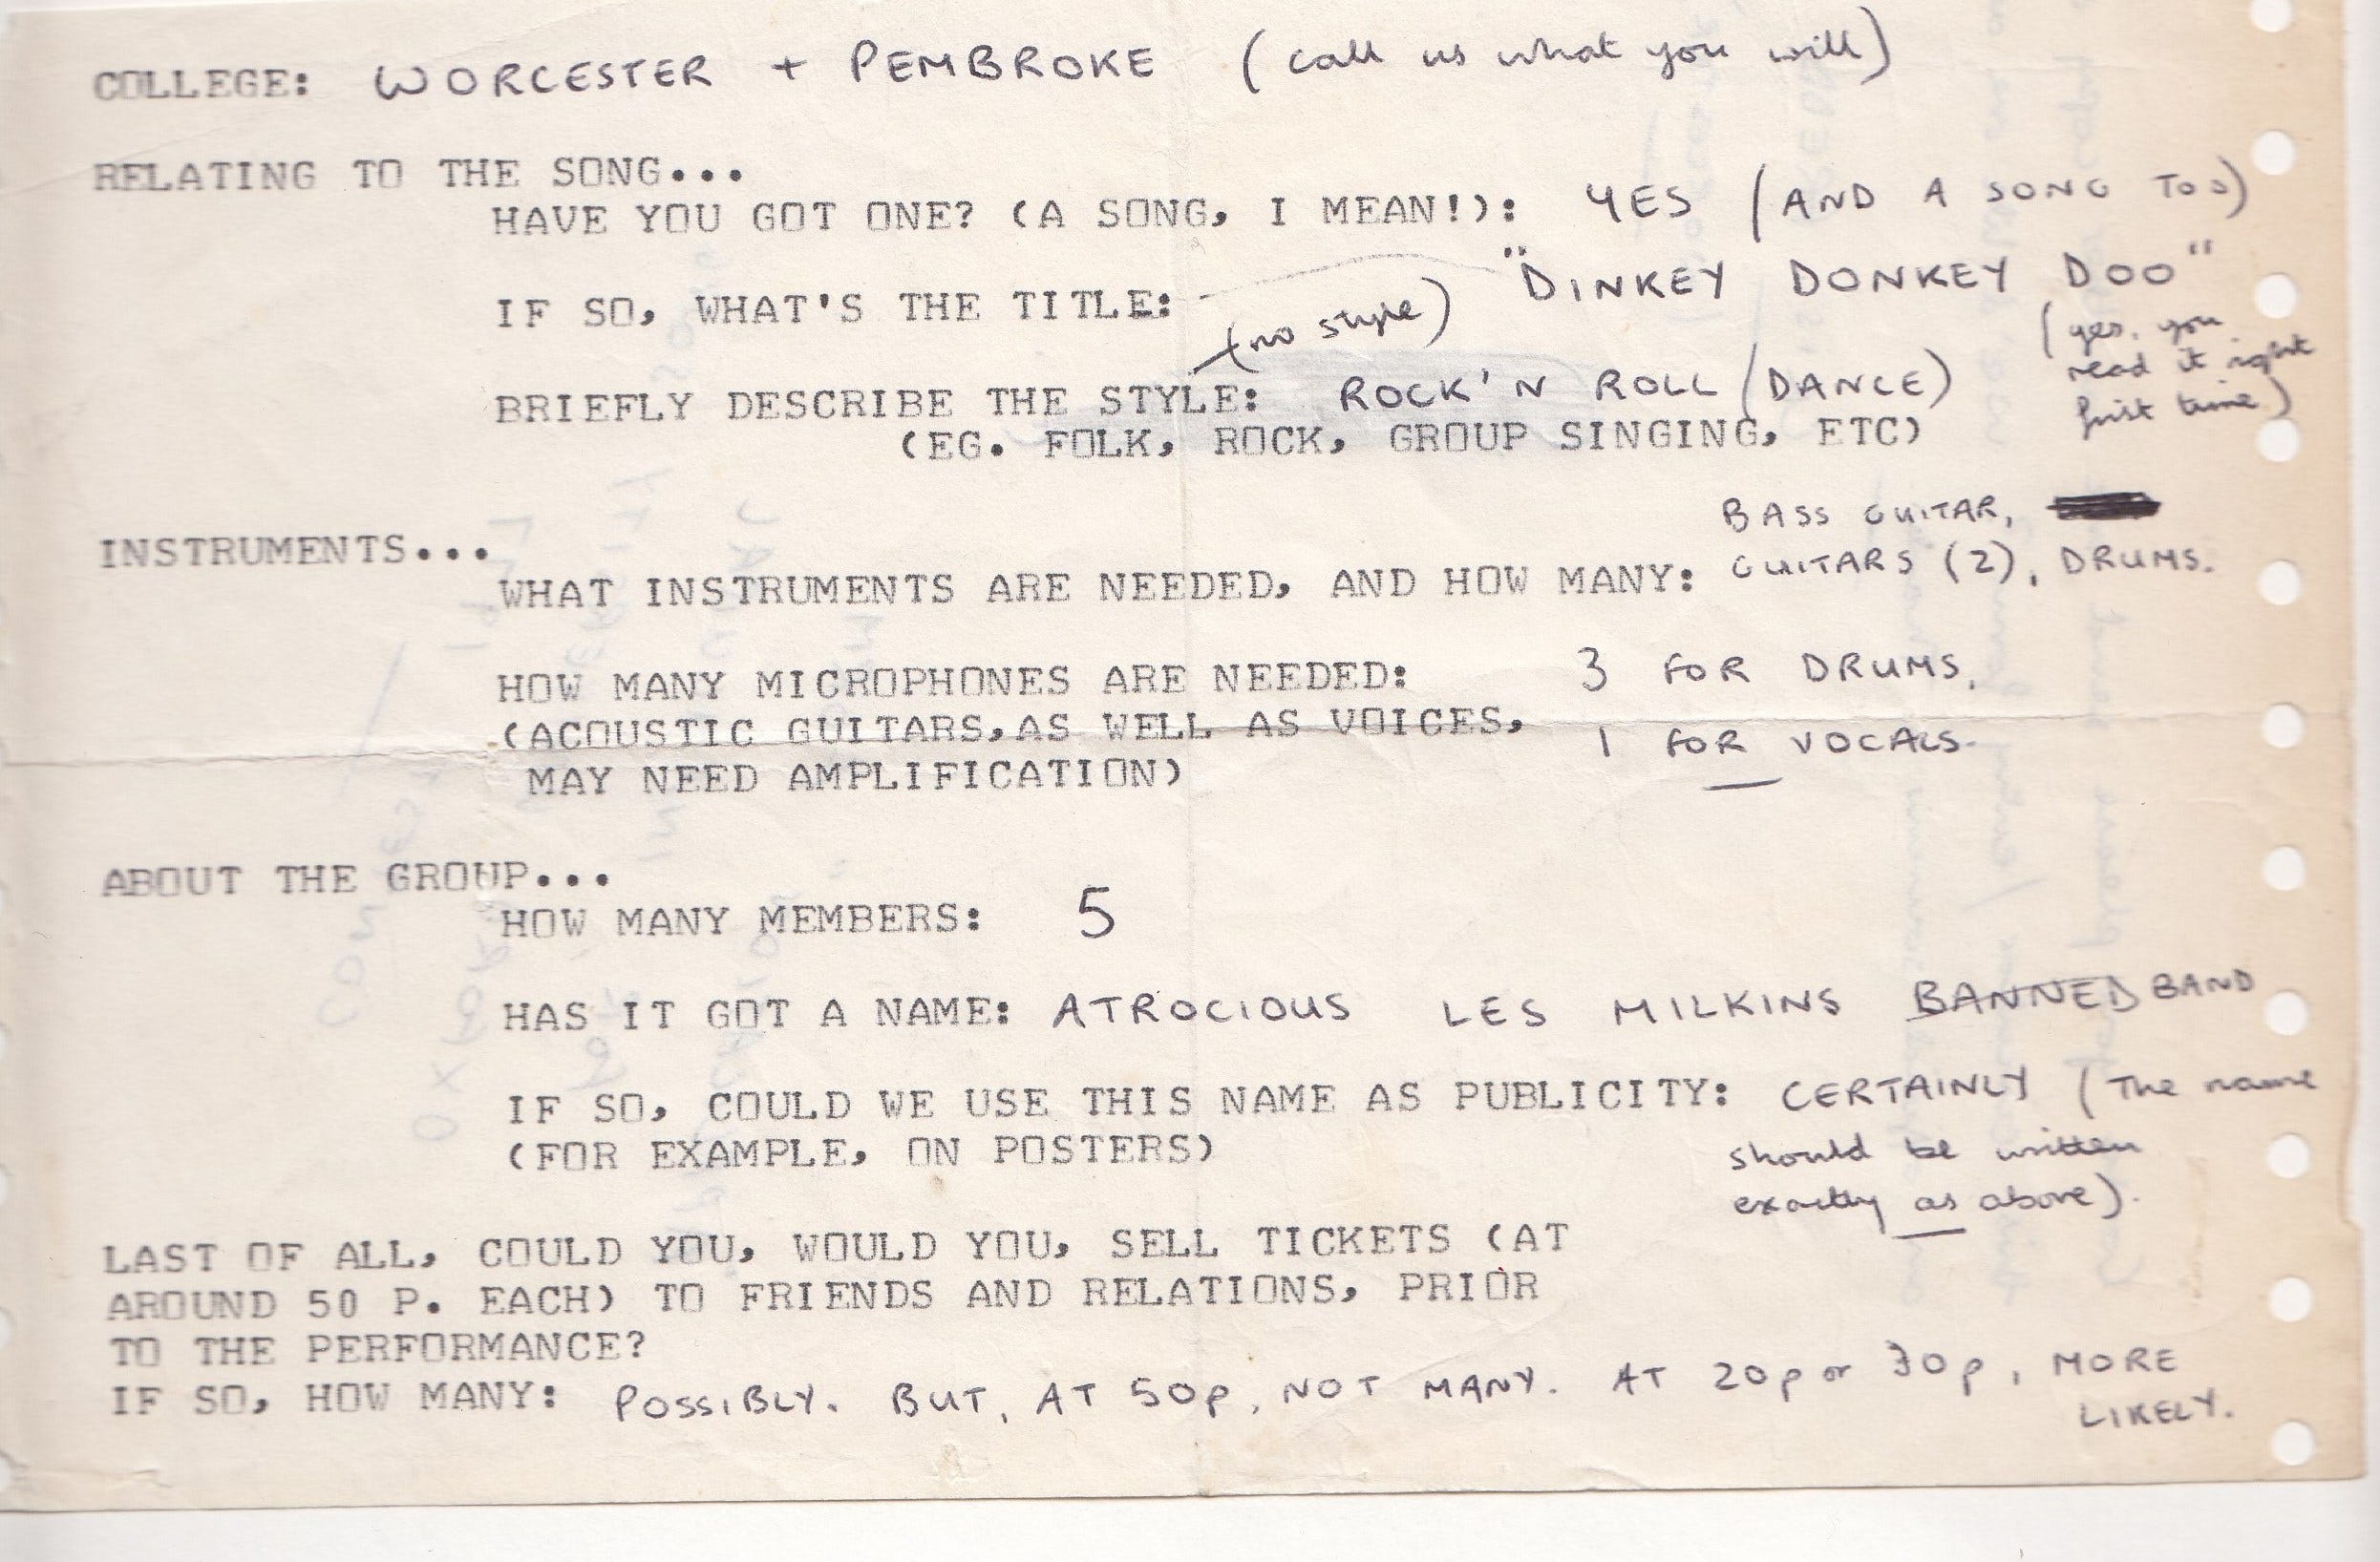 COLLEGE: WORCESTER + PEMBROKE (call us what you will)
RELATING TO THE SONG...
HAVE YOU GOT ONE? (A SONG, I MEAN!): YES (AND A SONG TOO)
IF SO, WHAT'S THE TITLE: "DINKEY DONKEY DOO"
(yes, you
read it right
first time)
(no style)
BRIEFLY DESCRIBE THE STYLE: ROCK'N ROLL (DANCE)
(EG. FOLK, ROCK, GROUP SINGING, ETC)
INSTRUMENTS...
BASS GUITAR,
WHAT INSTRUMENTS ARE NEEDED, AND HOW MANY: GUITARS (2), DRUMS.
HOW MANY MICROPHONES ARE NEEDED: 3 FOR DRUMS,
(ACOUSTIC GUITARS,AS WELL AS VOICES, 1 FOR VOCALS.
MAY NEED AMPLIFICATION)
ABOUT THE GROUP...
HOW MANY MEMBERS: 5
HAS IT GOT A NAME: ATROCIOUS LES MILKINS BANNED BAND
IF SO, COULD WE USE THIS NAME AS PUBLICITY: CERTAINLY (The name
(FOR EXAMPLE, ON POSTERS) should be written
exactly as above).
LAST OF ALL, COULD YOU, WOULD YOU, SELL TICKETS (AT
AROUND 50 P. EACH) TO FRIENDS AND RELATIONS, PRIOR
TO THE PERFORMANCE?
IF SO, HOW MANY: POSSIBLY. BUT, AT 50p, NOT MANY. AT 20p or 30p, MORE
LIKELY.